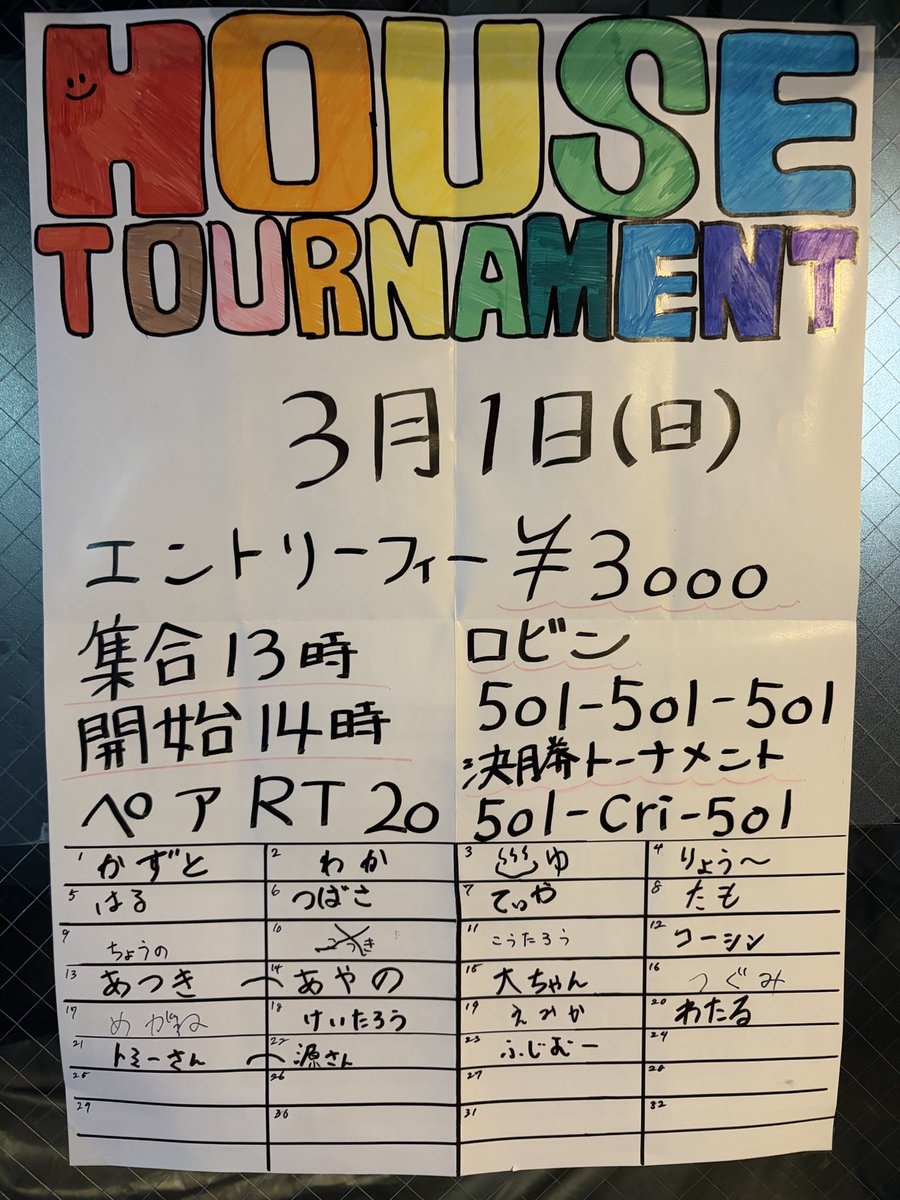 HOUSE
TOURNAMENT
3月1日(日)
エントリーフィー ¥3000
集合13時
開始14時
ペア RT 20
ロビン
501-501-501
決勝トーナメント
501-Cri-501
1 かずと 2 わか 3 ゆ 4 りょう〜
5 はる 6 つばさ 7 てぃや 8 たも
9 ちょうの 10 11 こうたろう 12 コーシン
13 あつき 14 あやの 15 大ちゃん 16 つぐみ
17 めがね 18 けいたろう 19 えみか 20 わたる
21 トミーさん 22 源さん 23 ふじむー 24
25 26 27 28
29 30 31 32